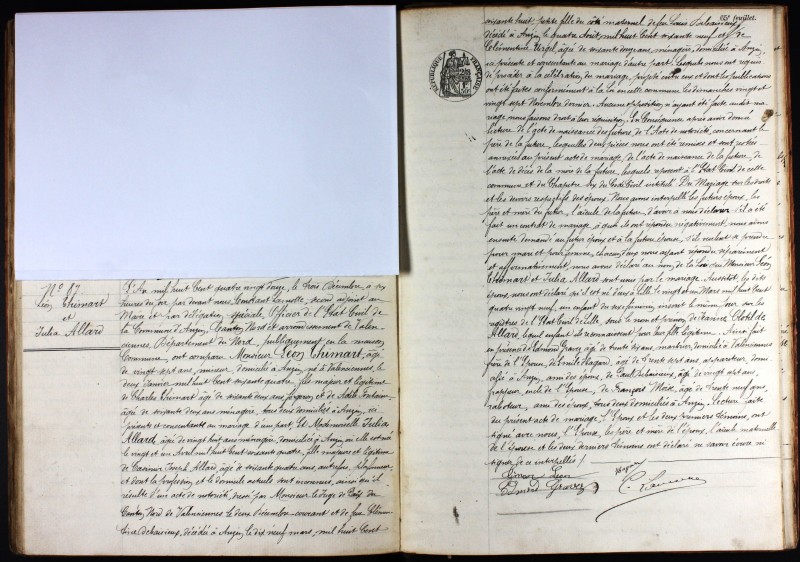 N° 87
Léon Thumart
et
Julia Allard
L'An mil huit Cent quatre vingt onze, le trois Décembre, à six
heures du soir par devant nous Constant Lamotte, second adjoint au
Maire et par délégation spéciale, Officier de l'Etat Civil de
la Commune d'Anzin, Canton Nord et arrondissement de Valen-
ciennes, Département du Nord, publiquement en la maison
Commune, ont comparu Monsieur Léon Thumart, âgé
de vingt sept ans, mineur, domicilié à Anzin, né à Valenciennes, le
deux Janvier mil huit Cent soixante quatre, fils majeur et légitime
de Charles Thumart âgé de soixante deux ans, et de Adèle
âgée de soixante deux ans ménagère, tous deux domiciliés à Anzin, ici
présents et consentants au mariage d'une part, Et Mademoiselle Julia
Allard, âgée de vingt sept ans ménagère, domiciliée à Anzin, où elle est née
le vingt et un Avril mil huit Cent soixante quatre, fille majeure et légitime
de Casimir Joseph Allard âgé de soixante quatre ans autrefois
et dont la profession et le domicile actuels sont inconnus, ainsi qu'il
résulte d'un acte de notoriété, dressé par Monsieur le Juge de Paix du
Canton Nord de Valenciennes le deux Décembre courant et de feu Clémen-
tine Debavieux, décédée à Anzin, le dix neuf mars, mil huit Cent
feuillet
RÉPUBLIQUE FRANÇAISE
soixante huit; petite fille du côté maternel de feu Louis
décédé à Anzin, le quatre Août, mil huit Cent soixante neuf et de
Clémentine Urgel, âgée de soixante douze ans, ménagère, domiciliée à Anzin,
ici présente et consentante au mariage d'autre part. Lesquels nous ont requis
de procéder à la célébration du mariage, projeté entre eux et dont les publications
ont été faites conformément à la loi en cette commune les dimanches vingt et
vingt sept Novembre dernier. Aucune opposition, n'ayant été faite audit ma-
riage nous faisons droit à leur réquisition. En Conséquence après avoir donné
lecture de l'acte de naissance du futur, de l'Acte de notoriété, concernant le
père de la future, lesquelles deux pièces nous ont été remises et sont restées
annexées au présent acte de mariage, de l'acte de naissance de la future, de
l'acte de décès de la mère de la future, lesquels reposent à l'Etat Civil de cette
commune et du Chapitre six du Code Civil intitulé: Du Mariage sur les droits
et les devoirs respectifs des époux. Nous avons interpellé les futurs époux, les
père et mère du futur, l'aïeule de la future, d'avoir à nous déclarer s'il a été
fait un contrat de mariage, à quoi ils ont répondu négativement, nous avons
ensuite demandé au futur époux et à la future épouse, s'ils veulent se prendre
pour mari et pour femme, chacun d'eux nous ayant répondu séparément
et affirmativement, nous avons déclaré au nom de la Loi que Monsieur Léon
Thumart et Julia Allard sont unis par le mariage. Aussitôt, les dits
époux, nous ont déclaré qu'il est né d'eux à Lille le vingt et un Mars mil huit Cent
quatre vingt neuf, un enfant du sexe féminin, inscrit le même jour sur les
registres de l'Etat Civil de Lille, sous le nom et prénom de Jeanne Clotilde
Allard, lequel enfant ils reconnaissent pour leur fille légitime. Ainsi fait
en présence de Edmond Gravez, âgé de trente six ans, domicilié à Valenciennes
frère de l'époux, de Emile Hagard, âgé de trente sept ans, domi-
cilié à Anzin, ami des époux, de Paul Debavieux, âgé de vingt sept ans,
frappeur, oncle de l'épouse, de François Moré, âgé de trente neuf ans,
raboteur, ami des époux, tous deux domiciliés à Anzin. Lecture faite
du présent acte de mariage, l'époux et les deux premiers témoins, ont
signé avec nous, l'épouse, les père et mère de l'époux, l'aïeule maternelle
de l'épouse et les deux derniers témoins ont déclaré ne savoir écrire ni
signer, de ce interpellés.
Léon
Edmond Gravez